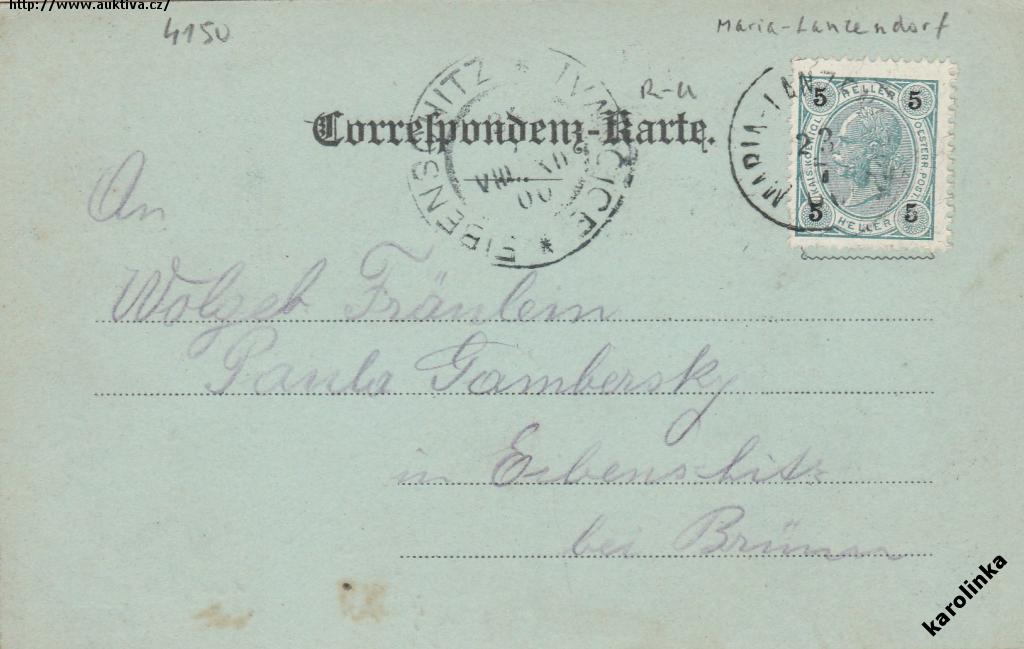 http://www.auktiva.cz/
4150
Maria-Lanzendorf
R-U
Correspondenz-Karte.
EIBENSCHITZ * IVANČICE *
00
MARIA-LANZ
23
5 HELLER 5
KAIS. KÖNIGL. OESTERR. POST.
5 HELLER 5
An
Wolgeb Fräulein
Paula Gambersky
in Eibenschitz
bei Brünn
karolinka